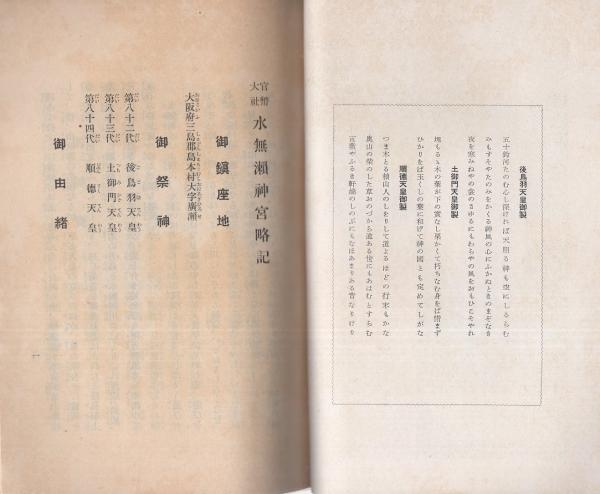 後鳥羽天皇御製
五十鈴河たのむ心し深ければ天照る神も空にしるらむ
みもすそやたのみをかくる神風の心にふかぬときのまぞなき
土御門天皇御製
夜を寒みねやの衾のさゆるにもわらやの風をおもひこそやれ
埋もるゝ木の葉が下の
朽ちなむ身をば惜まず
ひかりをば玉くしの葉に和げて神の國とも定めてしがな
順德天皇御製
つま木とる
山人のしをりして道よるほどの行末もかな
奥山の柴のした草おのづから道ある世にもあはむとすらむ
百敷やふるき軒端のしのぶにもなほあまりある昔なりけり
官幣大社 水無瀨神宮略記
御鎭座地
大阪府三島郡島本村大字廣瀨
御祭神
第八十二代 後鳥羽天皇
第八十三代 土御門天皇
第八十四代 順德天皇
御由緒